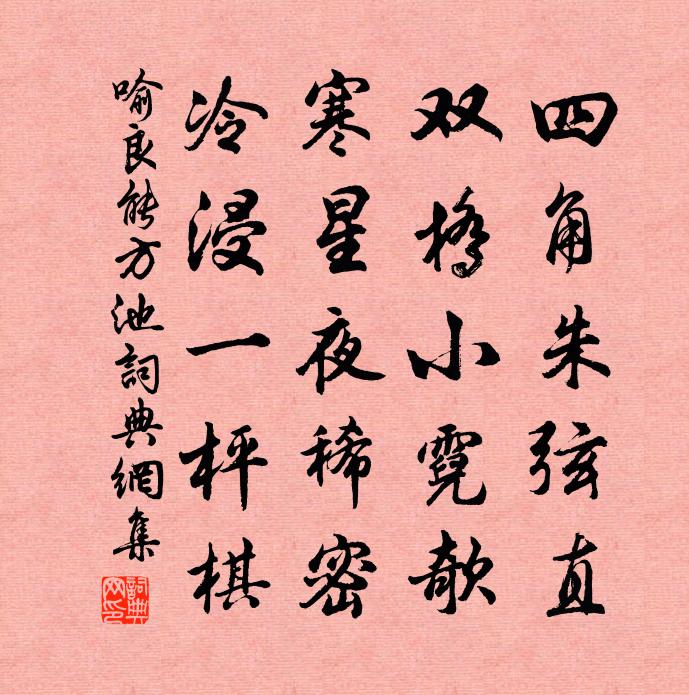 四角朱弦直
双桥小霓欹
寒星夜稀密
冷浸一枰棋
喻良能方池詞典網集
詞典網印